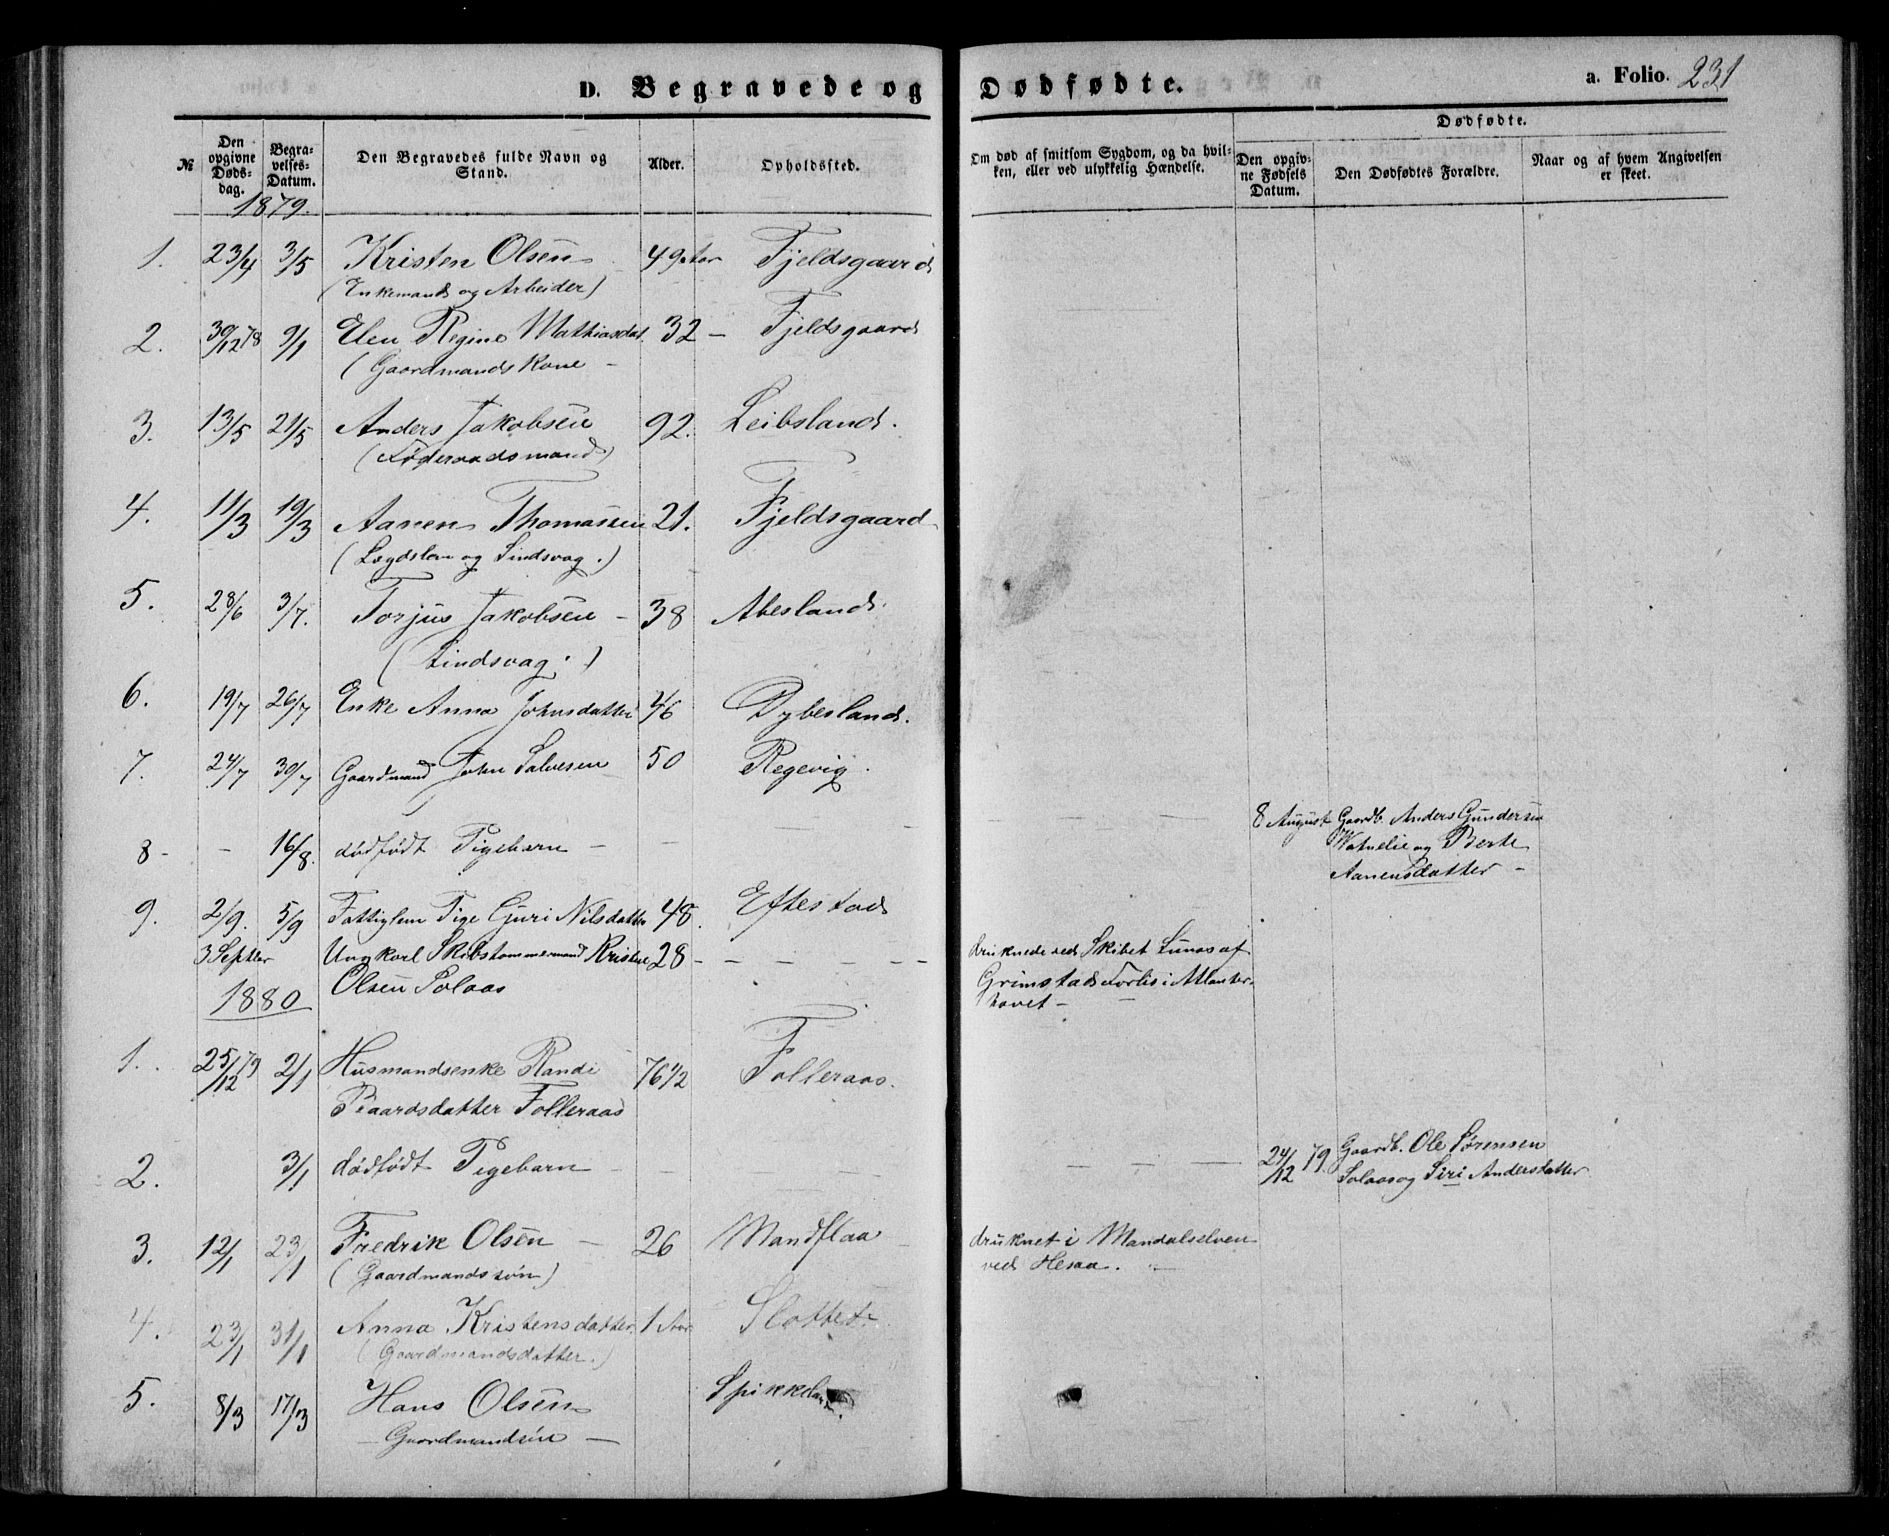 D. Begravede og Dødfødte.
a. Folio. 231
№
Den opgivne Dødsdag.
Begravelses-Datum.
Den Begravedes fulde Navn og Stand.
Alder.
Opholdssted.
Om død af smitsom Sygdom, og da hvilken, eller ved ulykkelig Hændelse.
Dødfødte.
Den opgivne Fødsels Datum.
Den Dødfødtes Forældre.
Naar og af hvem Angivelsen er skeet.
1879.
1. 23/4 3/5 Kristen Olsen 49 Aar Fjeldsgaard
(Enkemand og Arbeider)
2. 30/12 78 9/1 Elen Regine Mathiasdat. 32 – Fjeldsgaard
(Gaardmandskone –
3. 13/5 21/5 Anders Jakobsen 92. Leibsland.
(Føderaadsmand)
4. 11/3 19/3 Aanen Thomassen 21. Fjeldsgaard
(Lægdslem og Sindsvag.)
5. 28/6 3/7. Torjus Jakobsen – 38 Abesland.
(Sindsvag.)
6. 19/7 26/7 Enke Anna Johnsdatter 46 Dybesland.
7. 24/7 30/7 Gaardmand John Salvesen 50 Regevig.
8 – – 16/8. dødfødt Pigebarn – – – – – 8 August Gaardb. Anders Gundersen
og Berte
Aanensdatter –
9. 2/9. 5/9 Fattiglem Pige Guri Nilsdatter 48. Eftestad
3 Septbr Ungkarl Skibstømmermand Kristen 28 – – – – – – druknede ved Skibet Lunas af
Olsen Solaas Grimstads Forlis i Atlanter-
havet –
1880
1. 25/12 79 2/1 Husmandsenke Randi 76 1/2 Folleraas.
Baardsdatter Folleraas
2. 3/1 dødfødt Pigebarn – – – – – 24/12 79 Gaardb. Ole Sørensen
Solaas og Siri Andersdatter
3. 12/1 23/1 Fredrik Olsen – 26 Mandflaa – druknet i Mandalselven
(Gaardmandssøn) ved Hesaa. –
4. 23/1 31/1 Anna Kristensdatter 1 Aar Slottet.
(Gaardmandsdatter.)
5. 8/3 17/3 Hans Olsen
– Gaardmandsøn –